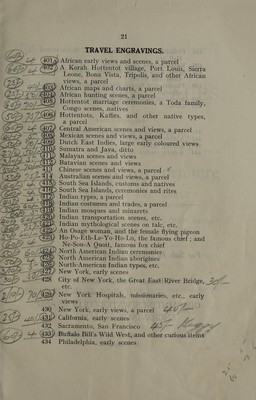 21
TRAVEL ENGRAVINGS.
401 African early views and scenes, a parcel
402 A Korah Hottentot village, Port Louis, Sierra
Leone, Bona Vista, Tripolis, and other African
views, a parcel
403 African maps and charts, a parcel
404 African hunting scenes, a parcel
405 Hottentot marriage ceremonies, a Toda family,
Congo scenes, natives
406 Hottentots, Kaffies, and other native types,
a parcel
407 Central American scenes and views, a parcel
408 Mexican scenes and views, a parcel
409 Dutch East Indies, large early coloured views
410 Sumatra and Java, ditto
411 Malayan scenes and views
412 Batavian scenes and views
413 Chinese scenes and views, a parcel
414 Australian scenes and views, a parcel
415 South Sea Islands, customs and natives
416 South Sea Islands, ceremonies and rites
417 Indian types, a parcel
418 Indian costumes and trades, a parcel
419 Indian mosques and minarets
420 Indian transportation scenes, etc.
421 Indian mythological scenes on talc, etc.
422 An Osage woman, and the female flying pigeon
423 Ho-Po-Eth-Le-Yo-Ho-Lo, the famous chief; and
Ne-Sou-A Quoit, famous fox chief
424 North American Indian ceremonies
425 North American Indian aborigines
426 North American Indian types, etc.
427 New York, early scenes
428 City of New York, the Great East River Bridge,
etc.
429 New York Hospitals, missionaries, etc., early
views
430 New York, early views, a parcel
431 California, early scenes
432 Sacramento, San Francisco
433 Buffalo Bill's Wild West, and other curious items
434 Philadelphia, early scenes